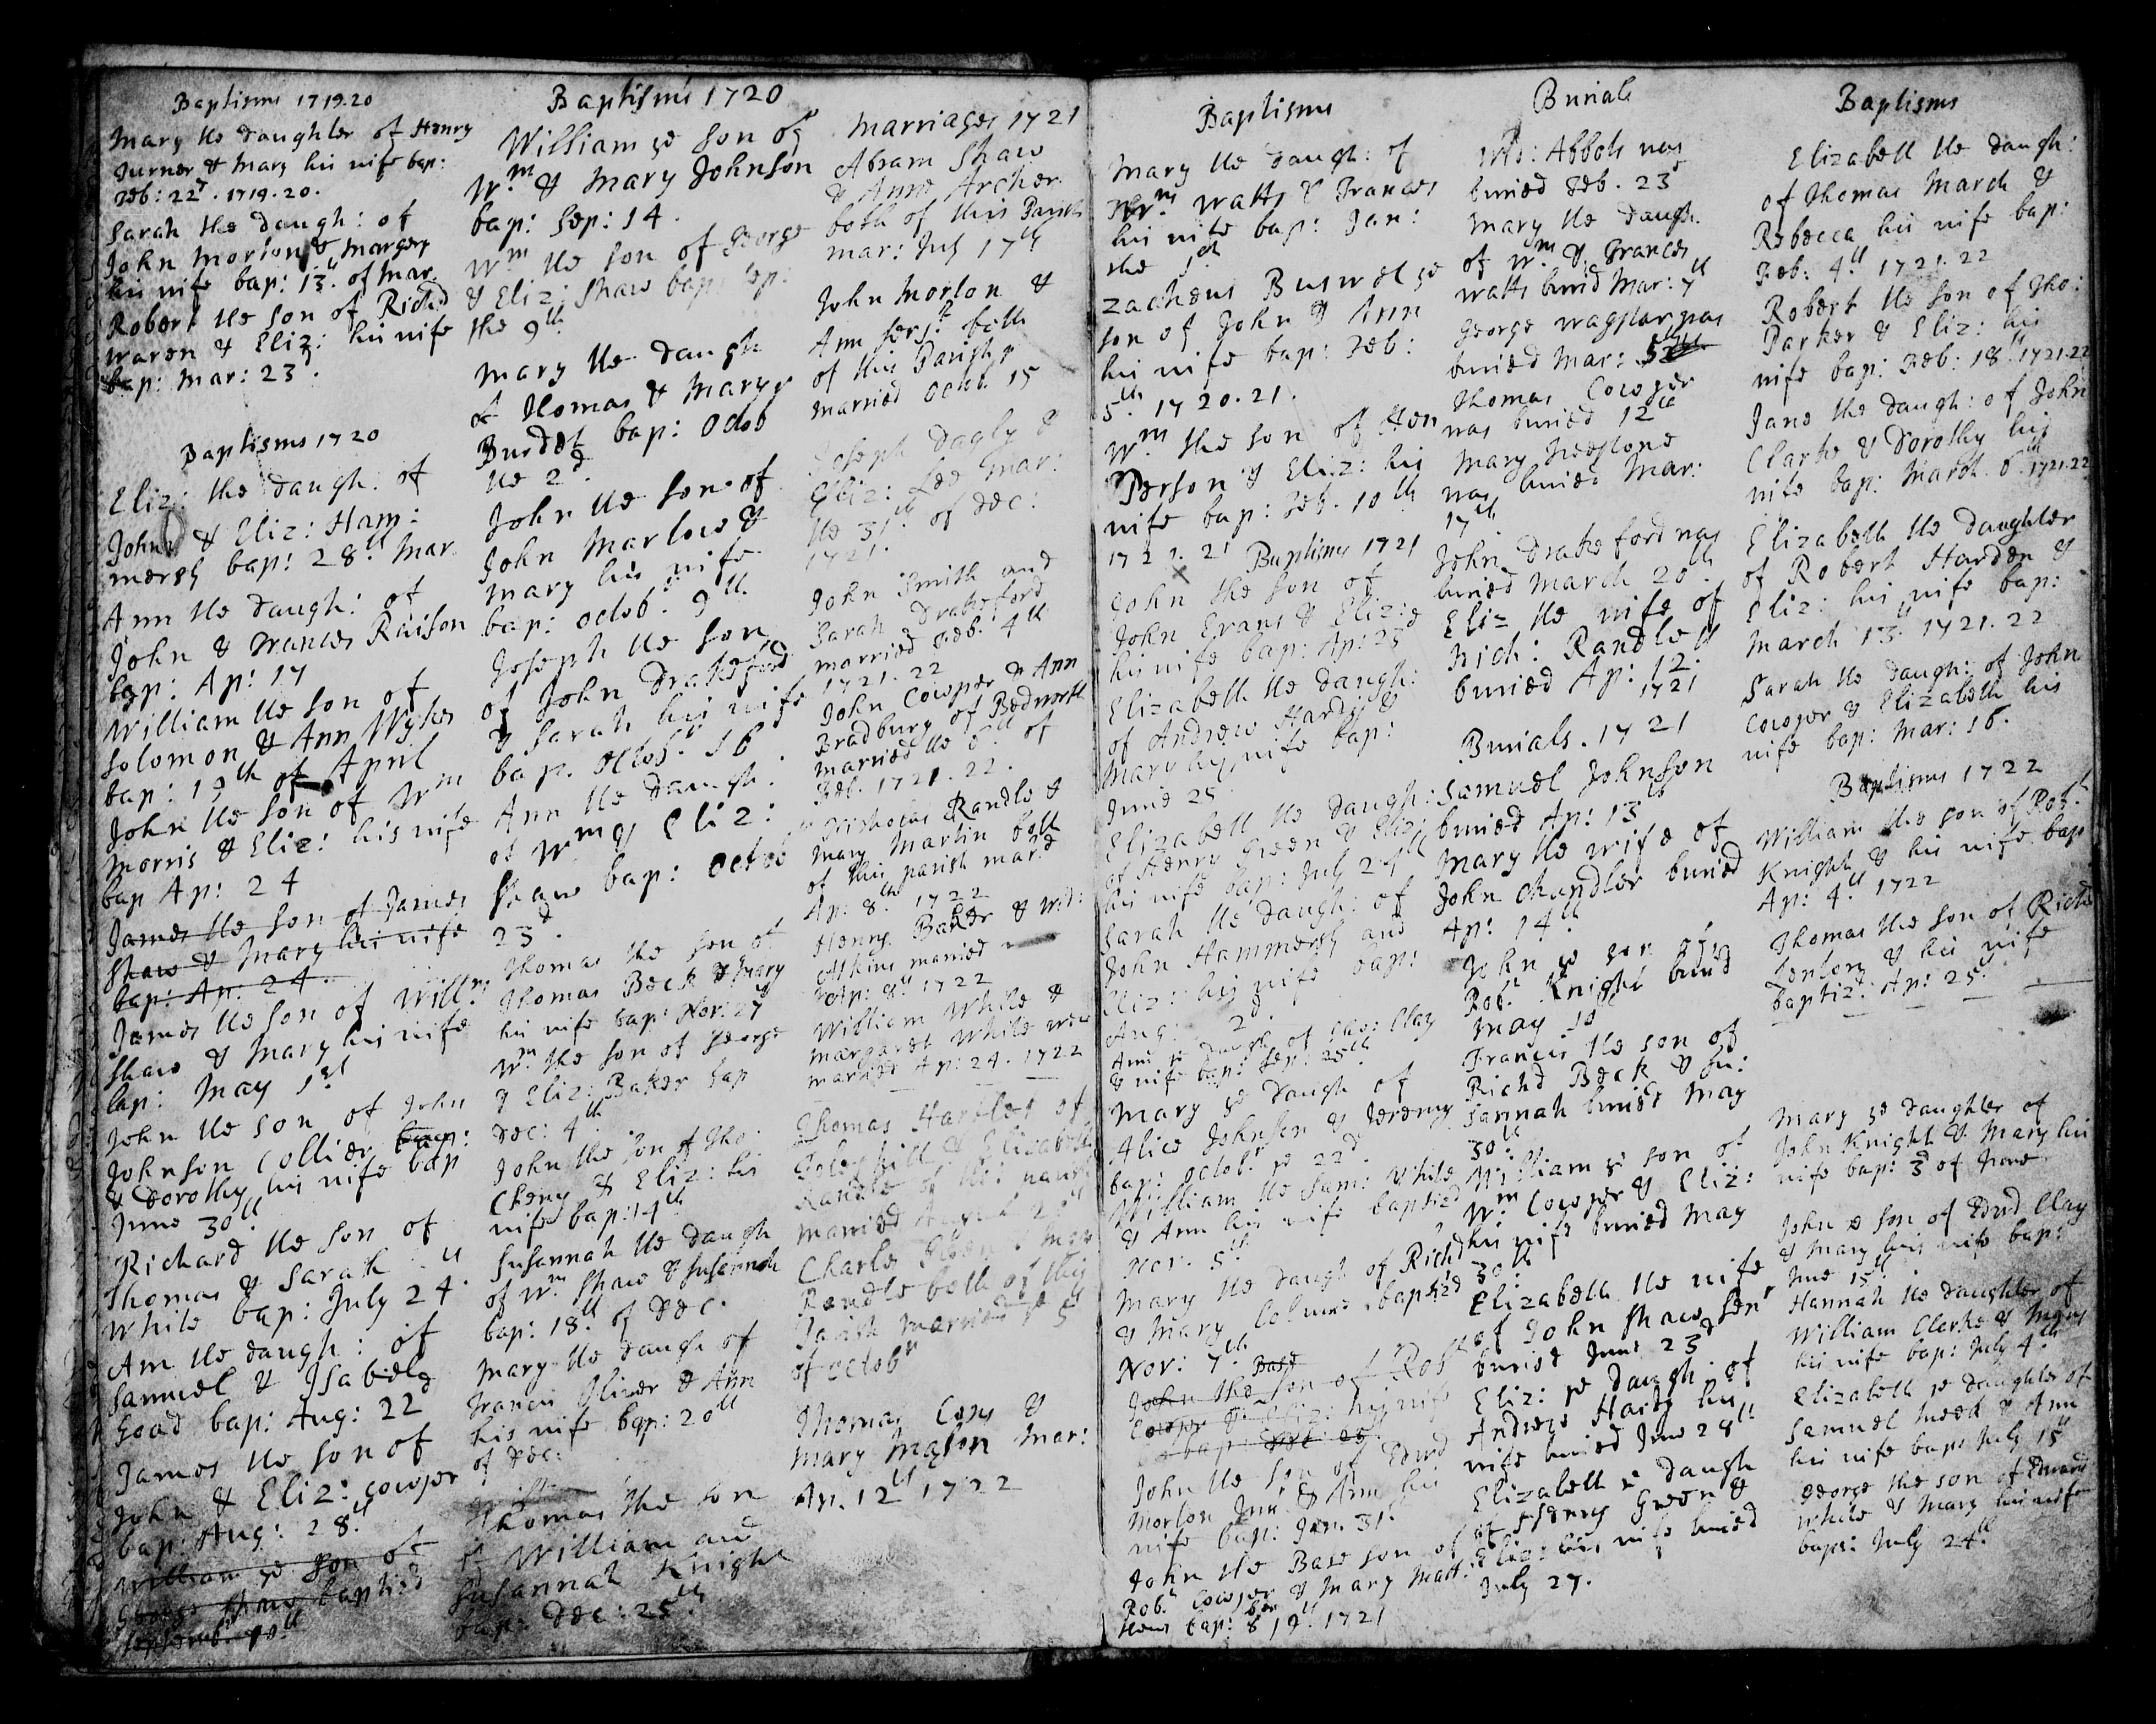 Baptisms 1719.20
Mary the daughter of Henry
Turner & Mary his wife bap:
Feb: 22d. 1719.20.
Sarah the daugh: of
John Morton & Margery
his wife bap: 13th. of Mar.
Robert the son of Richd
Waren & Eliz: his wife
bap: Mar: 23d.
Baptisms 1720
Eliz: the daugh: of
John & Eliz: Ham:
mersh bap: 28th Mar
Ann the daugh: of
John & Frances Raison
bap: Ap: 17
William the son of
Solomon & Ann Wykes
bap: 19th of April
John the son of Wm
Morris & Eliz: his wife
bap Ap: 24
James the son of James
Shaw & Mary his wife
bap: Ap. 24
James the son of Willm
Shaw & Mary his wife
bap: May 1st
John the son of John
Johnson Collier
& Dorothy his wife bap
June 30th.
Richard the son of
Thomas & Sarah
White bap: July 24th
Ann the daugh: of
Samuel & Isabel
Goad bap: Aug: 22d
James the son of
John & Eliz: Cowper
bap: Aug: 28th
William ye son of
George Shaw baptised
Septembr 10th
Baptisms 1720
William ye son of
Wm & Mary Johnson
bap: Sep: 14.
Wm the son of George
& Eliz: Shaw bap: Sep:
the 9th
Mary the daugh
of Thomas & Mary
Burdet bap: Octob
the 2d.
John the son of
John Marlow &
Mary his wife
bap: Octob: 9th.
Joseph the son
of John Drakeford
& Sarah his wife
bap. Octob. 16
Ann the daugh:
of Wm & Eliz:
Shaw bap: Octob
23d.
Thomas the son of
Thomas Beck & Mary
his wife bap: Nov: 27th
Wm the son of George
& Eliz: Baker bap
Dec: 4th
John the son of Tho:
Cheny & Eliz: his
wife bap: 14th
Susannah the daugh
of Wm Shaw & Susannah
bap: 18th of Dec.
Mary the daugh of
Francis Oliver & Ann
his wife bap: 20th
of Dec:
Thomas the son
of William and
Susannah Knight
bap: Dec: 25th
Marriages 1721
Abram Shaw
& Anne Archer
both of this Parish
mar: July 17th
John Morton &
Ann
both
of this Parish
married Octob 15
Joseph Dagly &
Eliz: Lee mar:
the 31st. of Dec:
1721.
John Smith and
Sarah Drakeford
married Feb. 4th
1721.22
John Cowper & Ann
Bradbury of Bedworth
married the 6th of
Feb. 1721.22.
Nicholas Randle &
Mary Martin both
of this parish mar:d
Ap: 8th 1722
Henry Baker &
Askins married
Ap: 8th 1722
William White &
Margaret White were
married Ap: 24. 1722
Thomas Hartles of
Coleshill & Elizabeth
Randle of this
married August
Charles & Mary
Randle both of this
Parish married ye 5th
of Octobr
Thomas Cony &
Mary Mason mar:
Ap. 12th 1722
Baptisms
Mary the daugh: of
Wm Watts & Frances
his wife bap: Jan:
the 1st
Zacheus Buswel ye
son of John & Ann
his wife bap: Feb:
5th. 1720.21.
Wm the son of Hen
Person & Eliz: his
wife bap: Feb. 10th
1720.21 Baptisms 1721
John the son of
John Evans & Eliz:
his wife bap: Ap: 23d
Elizabeth the daugh:
of Andrew Hardy &
Mary his wife bap:
June 25
Elizabeth the daugh:
of Henry Green & Eliz:
his wife bap: July 24th
Sarah the daugh: of
John Hammersh and
Eliz: his wife bap:
Aug: 2d.
Ann ye daugh of Clay
& wife bap: Sep: 25th
Mary ye daugh of
Alice Johnson & Jeremy
bap: Octobr ye 22d.
William the Sam: White
& Ann his wife baptised
Nov. 5th.
Mary the daugh of Richd
& Mary Colmore baptized
Nov: 7th.
Base
John the son of Robt
Cowper & Eliz: his wife
bap:
John the son of Edwd
Morton Junr & Ann his
wife bap: Jan. 31.
John the Base son of
Robt Cowper & Mary Matt:
hews bap: 8ber 19th 1721
Burials
Abbots was
buried Feb. 23d
Mary the daugh
of Wm & Frances
Watts buried Mar: 7th
George Wagstaf was
buried Mar:
Thomas Cowper
was buried 12th
Mary
was buried Mar:
17th
John Drakeford was
buried March 20th
Eliz the wife of
Rich: Randle
buried Ap: 12.
1721
Burials. 1721
Samuel Johnson
buried Ap: 13th
Mary the wife of
John Chandler buried
Ap: 14th
John ye son of
Robt Knight buried
May
Francis the son of
Richd Beck & Su:
sannah buried May
30th
William ye son of
Wm Cowper & Eliz:
his wife buried May
30th
Elizabeth the wife
of John Shaw Senr
buried June 23d
Eliz: ye daugh: of
Andrew Hardy his
wife buried June 28th
Elizabeth ye daugh
of Henry Green &
Eliz: his wife buried
July 27.
Baptisms
Elizabeth the daugh:
of Thomas March &
Rebecca his wife bap:
Feb: 4th 1721.22
Robert the son of Tho:
Parker & Eliz: his
wife bap: Feb: 18th 1721.22
Jane the daugh: of John
Clarke & Dorothy his
wife bap: March. 6th 1721.22
Elizabeth the daughter
of Robert Harden &
Eliz: his wife bap:
March 13th 1721.22
Sarah the daugh: of John
Cowper & Elizabeth his
wife bap: Mar: 16.
Baptisms 1722
William the son of Robt
Knight & his wife bap
Ap: 4th 1722
Thomas the son of Richd
& his wife
baptiz'd Ap: 25th
Mary ye daughter of
John Knight & Mary his
wife bap: 3d of June
John ye son of Edwd Clay
& Mary his wife bap:
June 15th
Hannah the daughter of
William Clerke & Mary
his wife bap: July 4th
Elizabeth ye daughter of
Samuel Meek & Ann
his wife bap: July 15th
George the son of Edward
White & Mary his wife
bap: July 24th